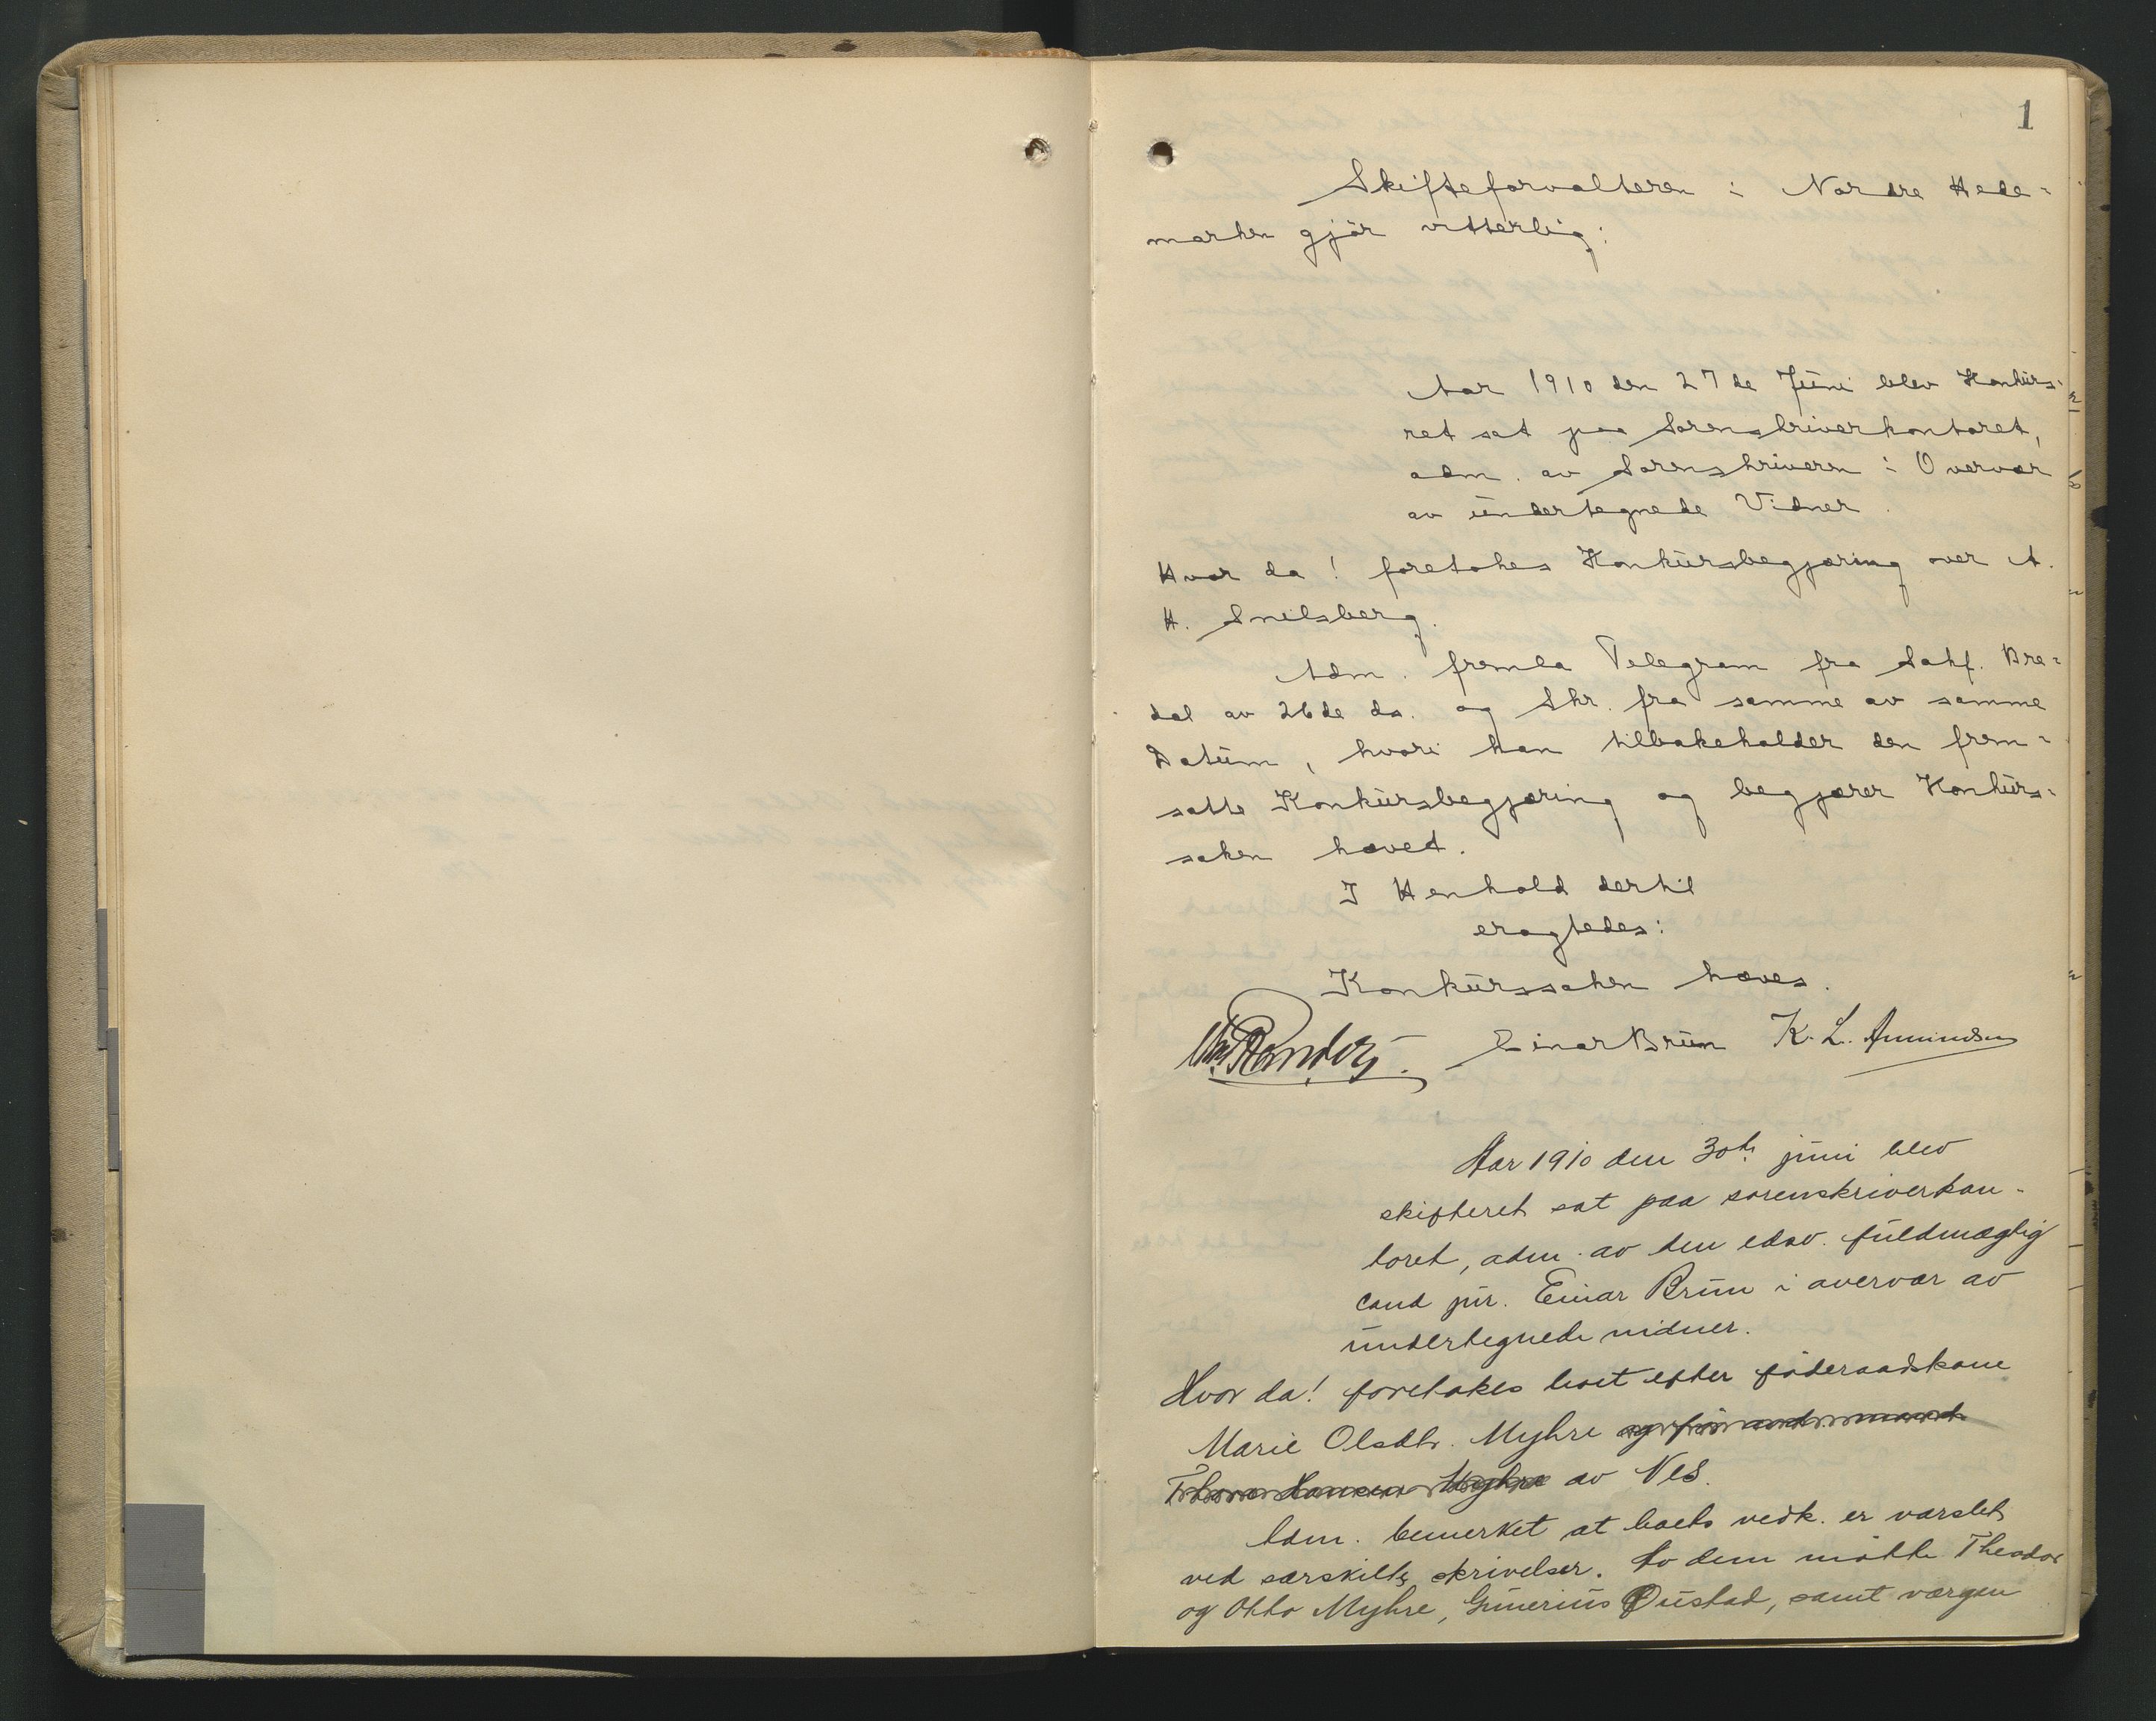 1
Skifteforvalteren i Nordre Hede-
marken gjör vitterlig:
Aar 1910 den 27de Juni blev Konkurs-
ret sat paa Sorenskriverkontoret,
adm. av Sorenskriveren i Overvær
av undertegnede Vidner.
Hvor da! foretokes Konkursbegjæring over A.
H. Snilsberg.
Adm. fremla Telegram fra Sakf. Bre-
dal av 26de ds. og Skr. fra samme av samme
Datum, hvori han tilbakeholder den frem-
satte Konkursbegjæring og begjærer Konkurs-
saken hævet.
I Henhold dertil
eragtedes:
Konkurssaken hæves.
Einar Brun K. L. Amundsen
Aar 1910 den 30te juni blev
skifteret sat paa sorenskriverkon-
toret, adm. av den edsv. fuldmægtig
cand jur. Einar Brun i overvær av
undertegnede vidner.
Hvor da! foretokes boet efter föderaadskone
Marie Olsdtr. Myhre og
Thore Hansen Myhre av Nes.
Adm. bemerket at boets vedk. er varslet
ved særskilte skrivelser. Av dem mötte Theodor
og Otto Myhre, Gunerius Pustad, samt værgen